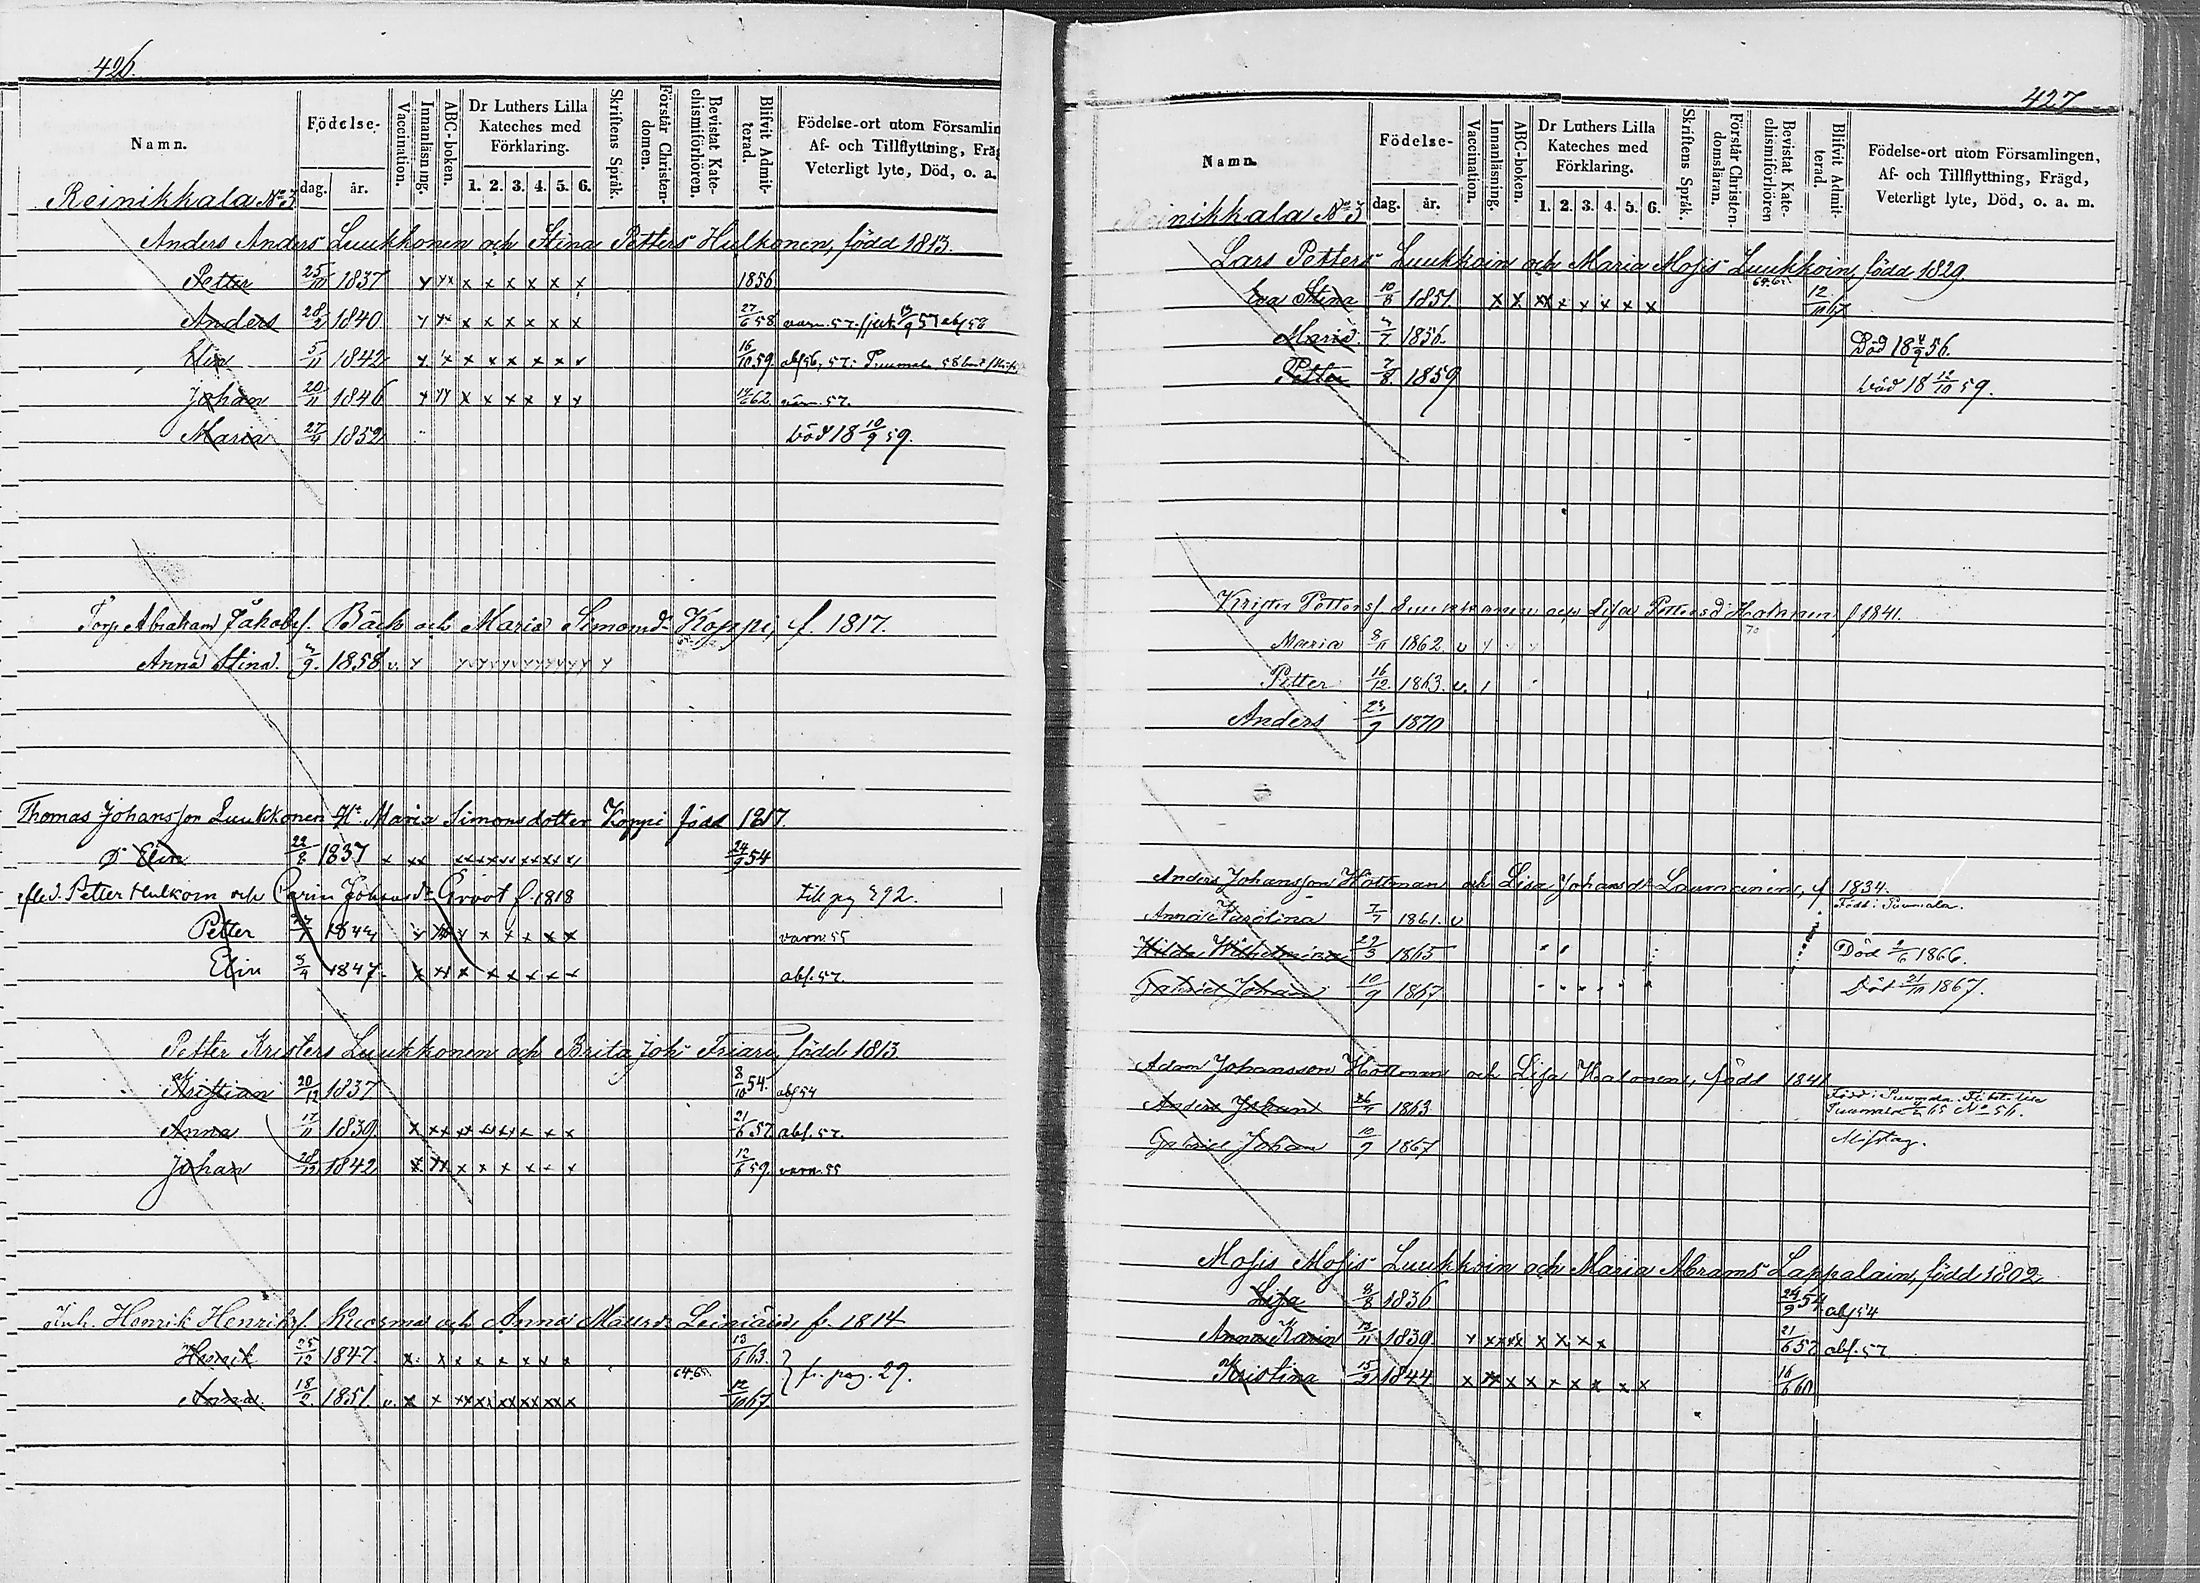 426.
Namn.
Födelse-
dag. år.
Vaccination.
Innanläsning.
ABC-boken.
Dr Luthers Lilla
Kateches med
Förklaring.
1. 2. 3. 4. 5. 6.
Skriftens Språk.
Förstår Christen-
domen.
Bevistat Kate-
chismiförhören.
Blifvit Admit-
terad.
Födelse-ort utom Församlin
Af- och Tillflyttning, Fräg
Veterligt lyte, Död, o. a.
Reinikkala No 3
Anders Anders Luukkonen och Stina Petters Hulkonen, född 1813.
Petter 25/11 1837 y yx x x x x x x 1856
Anders 28/2 1840 y yx x x x x x x 27/6 58 varn. 57. 57 abs 58
Elin 5/11 1842 y x x x x x x x 16/10 59. abs 56, 57 i Puumala 58
Johan 20/11 1846 y yy x x x x x x 62. 57.
Maria 27/4 1852 Död 18 10/9 59.
Torp Abraham Jakobs. Bäck och Maria Simonsd Koppi, f. 1817.
Anna Stina 9. 1858 v. y
Thomas Johansson Luukkonen Ht Maria Simonsdotter Koppi född 1817.
D Elin 22/8 1837 x xx 24/9 54
Petter Hulkoin och Carin Johansdr Groot f. 1818 till pag 392.
Petter 1844 varn. 55
Elin 5/4 1847. x x x x x x x x abs. 57.
Petter Kristers Luukkonen och Brita Joh Friari, född 1813
Kristian 20/12 1837 8/10 54. abs 54
Anna 17/11 1839 x xx x x 21/6 57 abs. 57.
Johan 28/12 1842 x xx x x x x x x 12/6 59. varn. 55
Inh. Henrik Henriks. Kuosma och Anna Maursdr Leiniäin f. 1814
Henrik 25/12 1847. x. x x x x x x x 13/6 63. } fr. pag. 29.
Anna 18/2 1851. v. x x 64.65 12/10 67.
427
Namn.
Födelse-
dag. år.
Vaccination.
Innanläsning.
ABC-boken.
Dr Luthers Lilla
Kateches med
Förklaring.
1. 2. 3. 4. 5. 6.
Skriftens Språk.
Förstår Christen-
domsläran.
Bevistat Kate-
chismiförhören
Blifvit Admit-
terad.
Födelse-ort utom Församlingen,
Af- och Tillflyttning, Frägd,
Veterligt lyte, Död, o. a. m.
Reinikkala No 3
Lars Petters Luukkoin och Maria Mosis Luukkoin, född 1829.
Eva Stina 10/8 1851. x x xx x x x x x 12/10 67
Maria 1856. Död 18 56.
Petter 7/8 1859 Död 18 12/10 59.
Krister Petterss Luukkonen och Lisa Pettersd Halonen f 1841.
Maria 8/11 1862. v y
Petter 16/12. 1863. v.
Anders 9 1870
Anders Johansson Hottman och Lisa Johansdr Lauraninen, f 1834.
Född i Puumala.
Anna Karolina 7/7 1861. v
Hilda Wilhelmina 29/3 1865 Död 2/6 1866.
Gabriel Johan 10/9 1867 Död 21/11 1867.
Adam Johansson Hottman och Lisa Halonen, född 1841
Född i Puumala.
Puumala 65 No 56.
Anders Johan 26/9 1863
Gabriel Johan 10/9 1867 Misstag.
Mosis Mosis Luukkoin och Maria Abrams Lappalain, född 1802.
Lisa 8/8 1836 24/9 54 abs 54
Anna Karin 13/11 1839. y xx xx x x x x 21/6 57 abs. 57
Kristina 15/2 1844 x xx x x x x x x x 16/6 60